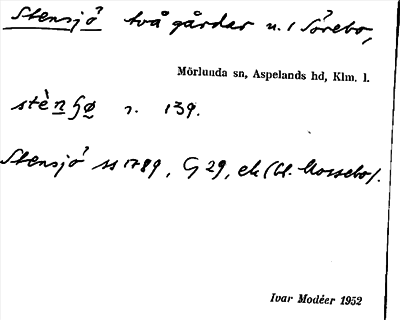 Stensjö två gårdar u. / Sörebo,
Mörlunda sn, Aspelands hd, Klm. l.
139.
Stensjö ss 1789, G 29, ek (bl. Mossebo).
Ivar Modéer 1952